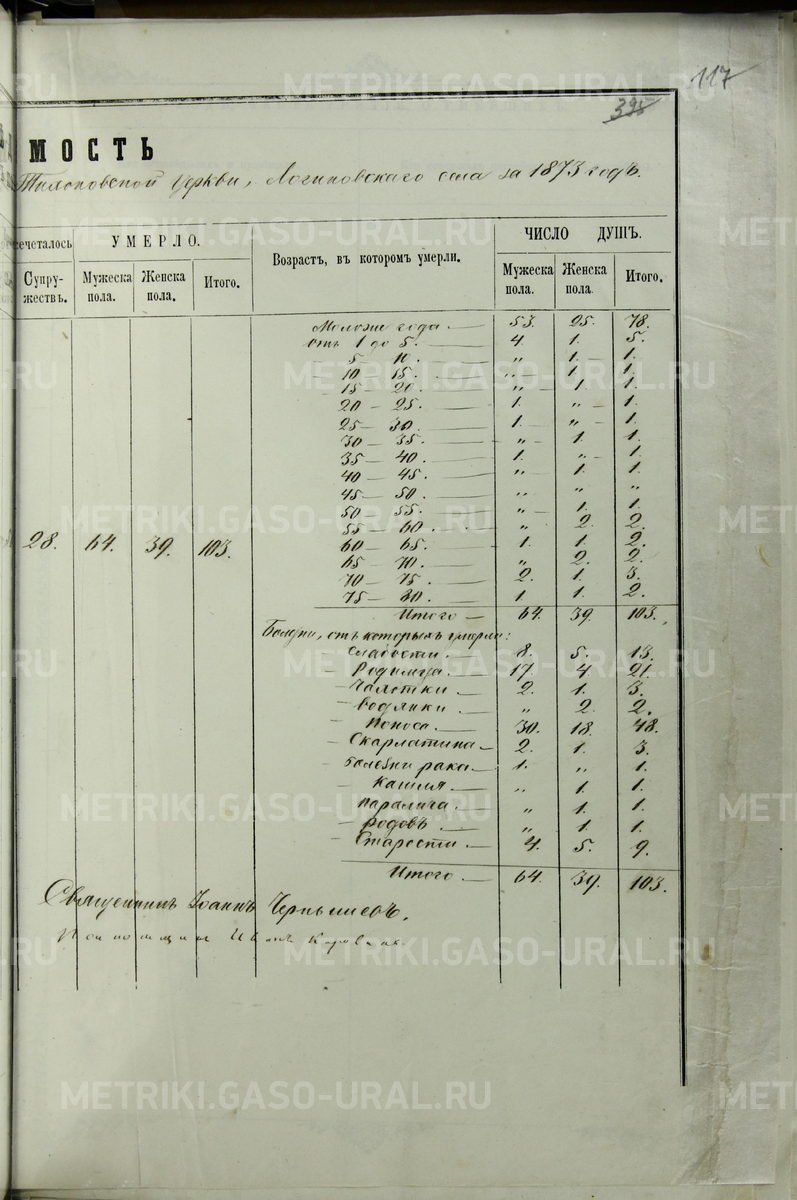 117
395
МОСТЬ
Тихоновской церкви, Логиновскаго села за 1873 годъ.
сочеталось УМЕРЛО. Возрастъ, въ которомъ умерли. ЧИСЛО ДУШЪ.
Супружествъ. Мужеска пола. Женска пола. Итого. Мужеска пола. Женска пола. Итого.
Моложе года. — 53. 25. 78.
Отъ 1 до 5. — 4. 1. 5.
5 — 10. — „ 1. 1.
10 — 15. — „ 1. 1.
15 — 20. — „ 1. 1.
20 — 25. — 1. „ 1.
25 — 30. — 1. „ 1.
30 — 35. — „ 1. 1.
35 — 40. — 1. „ 1.
40 — 45. — „ 1. 1.
45 — 50. — „ „ „
50 — 55. — „ 1. 1.
55 — 60. — „ 2. 2.
28. 64. 39. 103. 60 — 65. — 1. 1. 2.
65 — 70. — „ 2. 2.
70 — 75. — 2. 1. 3.
75 — 80. — 1. 1. 2.
Итого — 64. 39. 103.
Болезни, отъ которыхъ умерли:
— Слабости. — 8. 5. 13.
— Родимца. — 17. 4. 21.
— Чахотки. — 2. 1. 3.
— Водянки. — „ 2. 2.
— Поноса. — 30. 18. 48.
— Скарлатина — 2. 1. 3.
— Болезни рака — 1. „ 1.
— Кашля. — „ 1. 1.
— Паралича. — „ 1. 1.
— Родовъ. — „ 1. 1.
— Старости. — 4. 5. 9.
Итого. — 64. 39. 103.
Священникъ Іоаннъ Чернышевъ.
METRIKI.GASO-URAL.RU